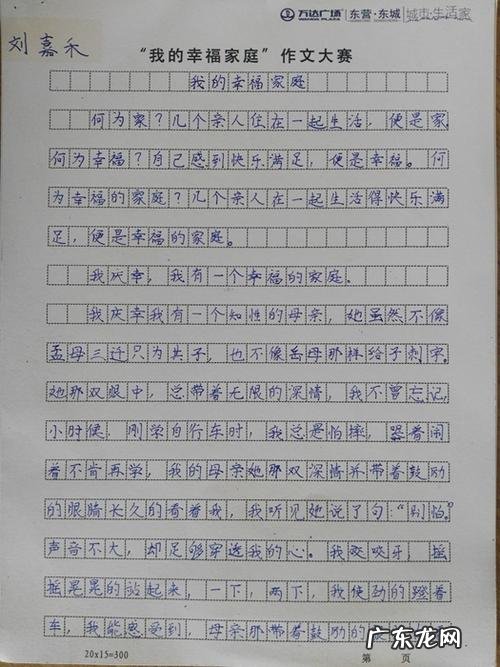 万达广场 WANDA PLAZA 东营·东城 城市·生活家
刘嘉禾
“我的幸福家庭”作文大赛
我的幸福家庭
何为家？几个亲人住在一起生活，便是家。
何为幸福？自己感到快乐满足，便是幸福。何
为幸福的家庭？几个亲人在一起生活得快乐满
足，便是幸福的家庭。
我庆幸，我有一个幸福的家庭。
我庆幸我有一个知性的母亲，她虽然不像
孟母三迁只为其子，也不像岳母那样给子刺字。
她那双眼中，总带着无限的深情，我不曾忘记，
小时候，刚学自行车时，我总是怕摔，哭着闹
着不肯再学，我的母亲她那双深情并带着鼓励
的眼睛长久的看着我，我听见她说了句：“别怕。”
声音不大，却足够穿透我的心。我咬咬牙，摇
摇晃晃的站起来，一下，两下，我使劲的蹬着
车，我能感受到，母亲那带着鼓励的
20x15=300
第 页
广东龙网